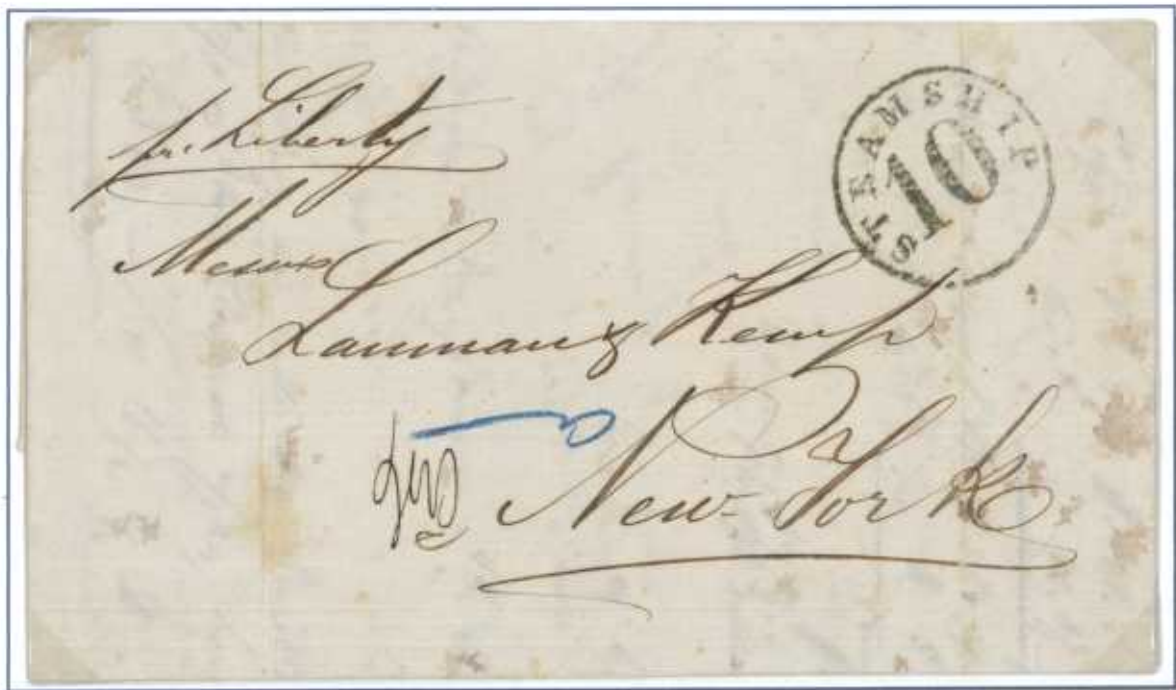 pr. Liberty
STEAMSHIP
10
Messrs
Lanman & Kemp
New-York